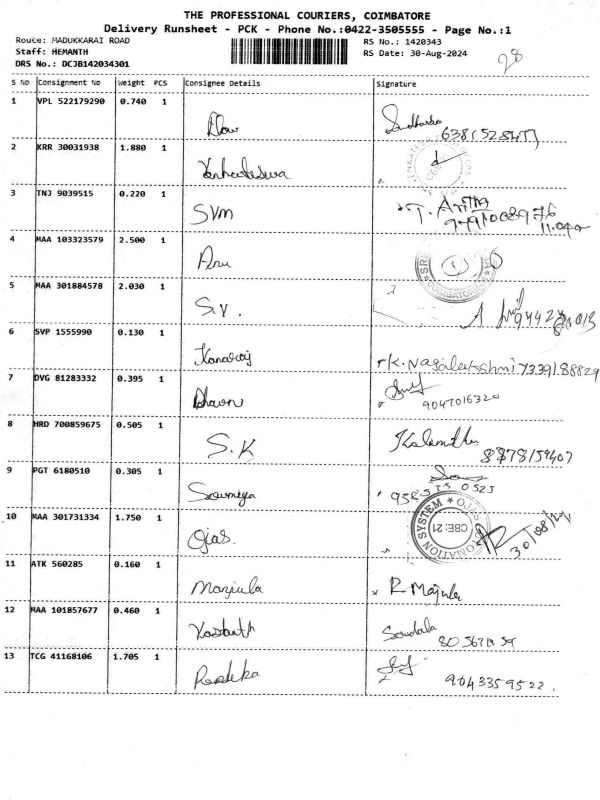 THE PROFESSIONAL COURIERS, COIMBATORE
Delivery Runsheet - PCK - Phone No.:0422-3505555 - Page No.:1
Route: MADUKKARAI ROAD RS No.: 1420343
Staff: HEMANTH RS Date: 30-Aug-2024
28
DRS No.: DCJB142034301
S No Consignment No Weight PCS Consignee Details Signature
1 VPL 522179290 0.740 1
2 KRR 30031938 1.880 1
Venkateshwa
3 TNJ 9039515 0.220 1
SVM T. Anitha
9791008976
11.00
4 MAA 103323579 2.500 1
5 MAA 301884578 2.030 1
S.V.
6 SVP 1555990 0.130 1
Kanaraj K. Nagalakshmi 7339188829
7 DVG 81283332 0.395 1
9047016320
8 HRD 700859675 0.505 1
S.K
8878159407
9 PGT 6180510 0.305 1
Sowmiya
10 MAA 301731334 1.750 1
Ojas. OJAS AUTOMATION SYSTEM CBE: 21 30/08/24
11 ATK 560285 0.160 1
Manjula R Majula
12 MAA 101857677 0.460 1
13 TCG 41168106 1.705 1
Radhika
9043359522.